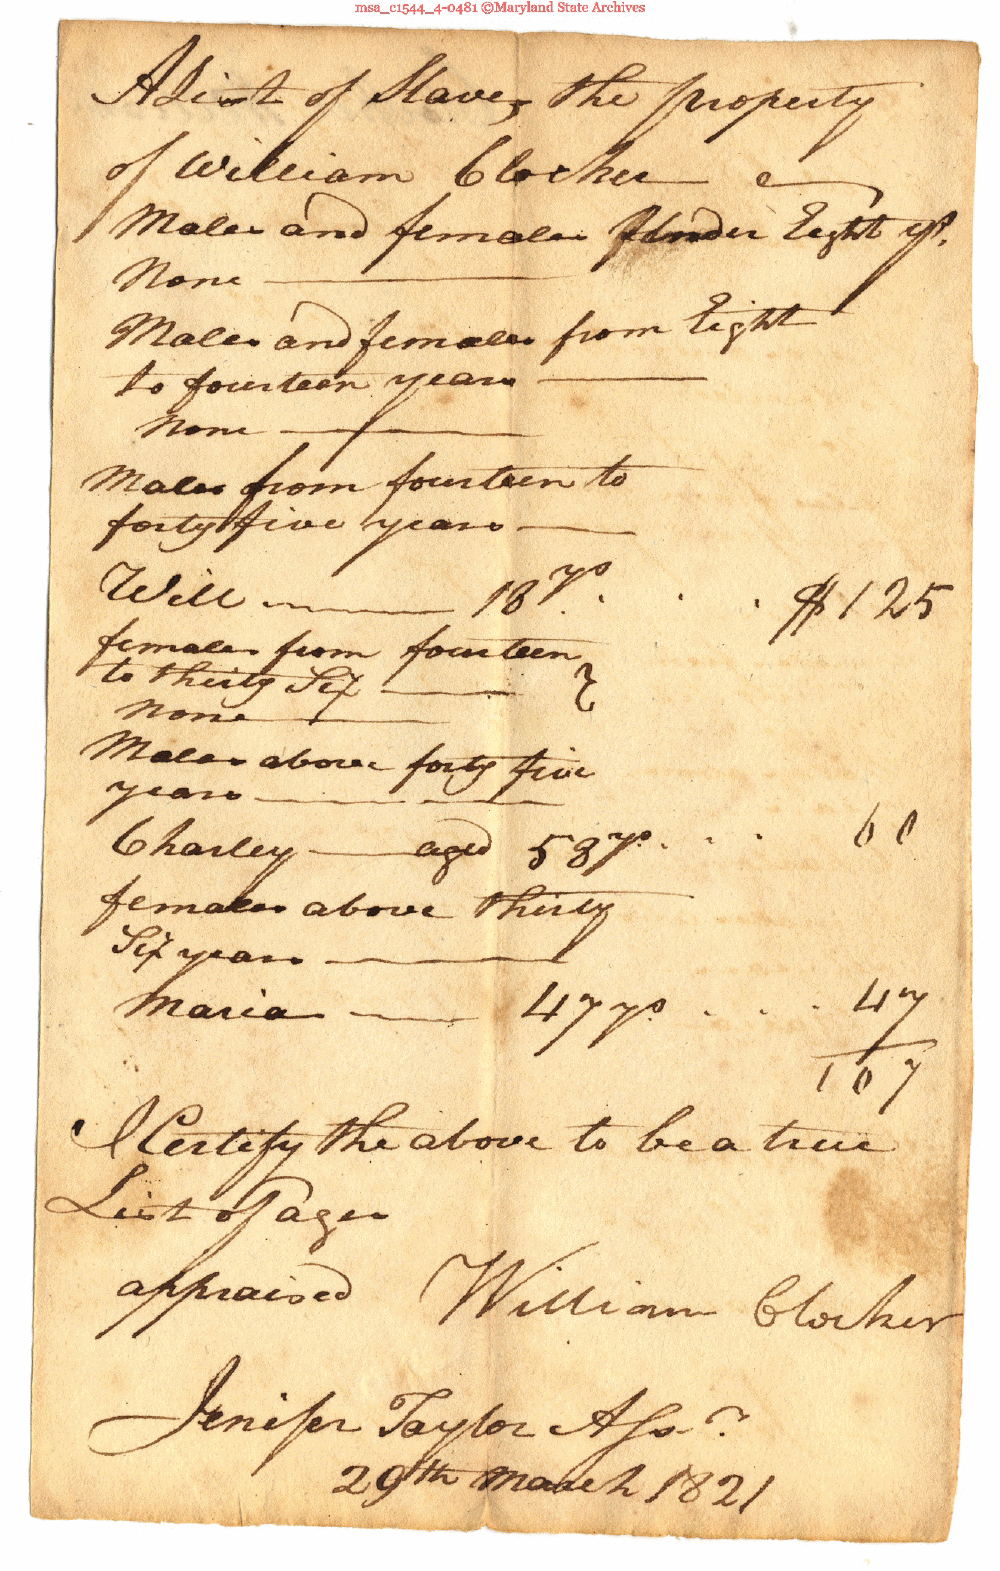 msa_c1544_4-0481 ©Maryland State Archives
A List of Slaves the property
of William Clocker
Males and females Under Eight ys.
None
Males and females from Eight
to fourteen years
None
Males from fourteen to
forty five years
Will 18 ys . . . $125
females from fourteen
to thirty Six
None
Males above forty five
years
Charley aged 58 ys. . . 00
females above thirty
Six years
Maria 47 ys . . . 47
107
I Certify the above to be a true
List of ages
appraised William Clocker
Jenifer Taylor Assr.
29th March 1821